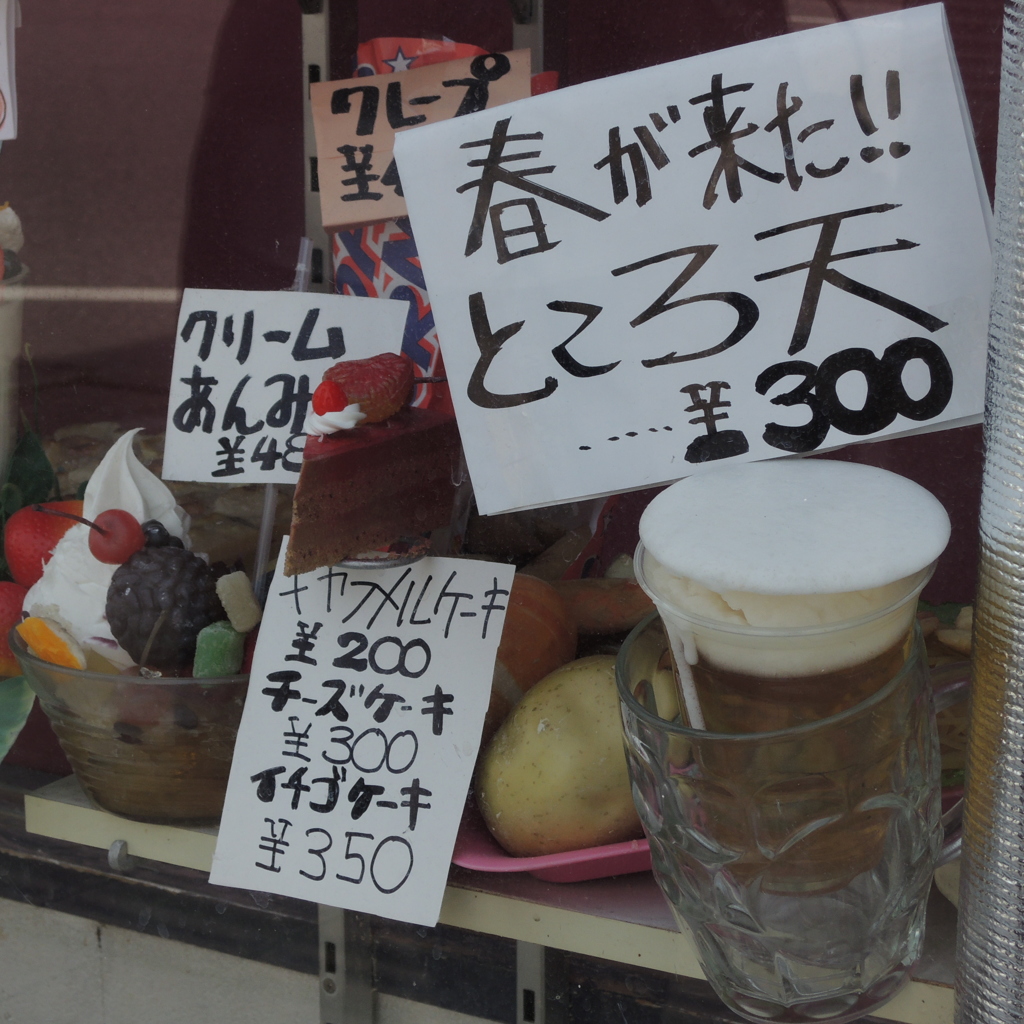 クレープ
春が来た!!
ところ天
.....¥300
クリーム
あんみ
¥48
キャラメルケーキ
¥200
チーズケーキ
¥300
イチゴケーキ
¥350